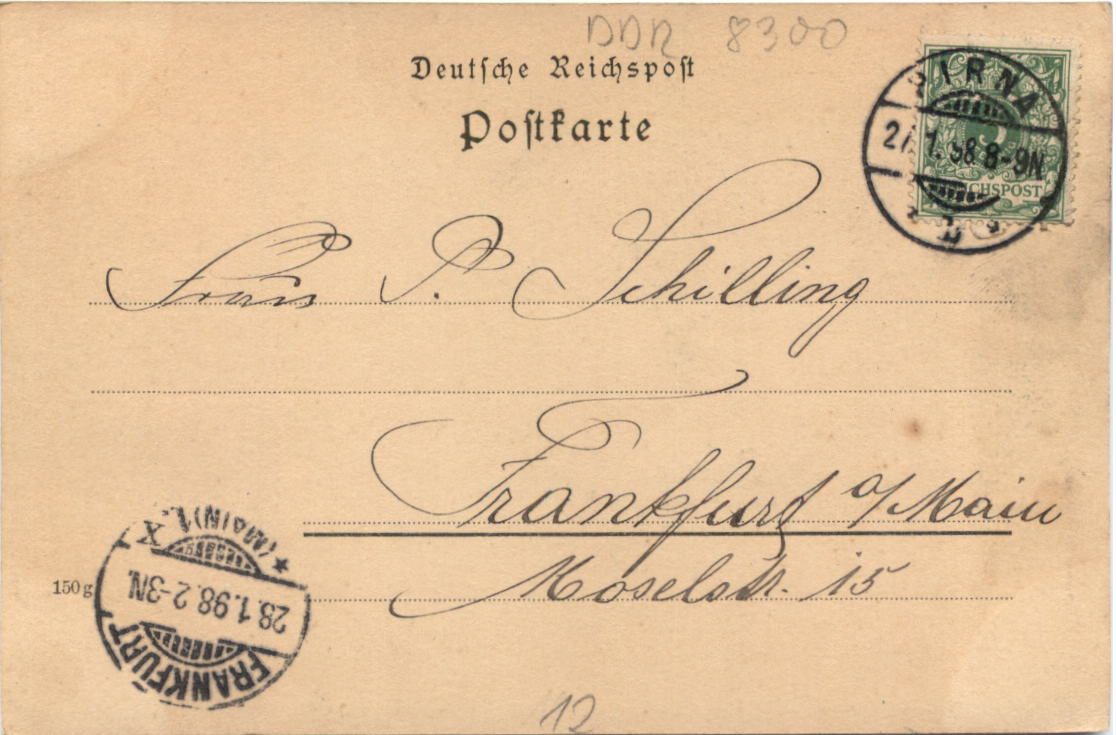 DDR 8300
Deutsche Reichspost
Postkarte
PIRNA
27.1.98.8-9N.
REICHSPOST
Frau P. Schilling
Frankfurt a/Main
Moselstr. 15
150 g
FRANKFURT
28.1.98.2-3N.
*(MAIN)1. X
12